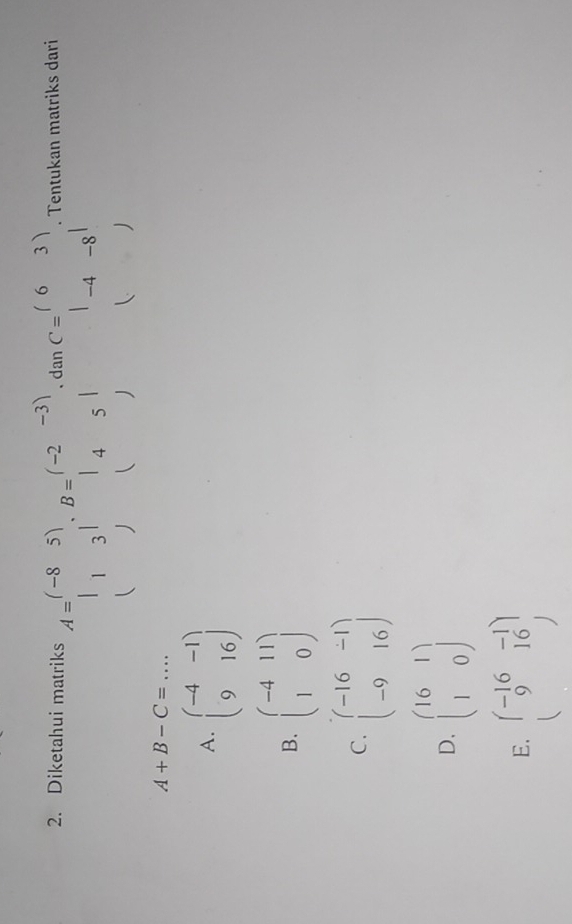 2. Diketahui matriks A = (−8 5), B = (−2 −3), dan C = (6 3). Tentukan matriks dari
| 1 3 | | 4 5 | | −4 −8 |
( ) ( ) ( )
A + B − C = ....
A. (−4 −1)
(9 16)
B. (−4 11)
(1 0)
C. (−16 −1)
(−9 16)
D. (16 1)
(1 0)
E. (−16 −1)
9 16
( )